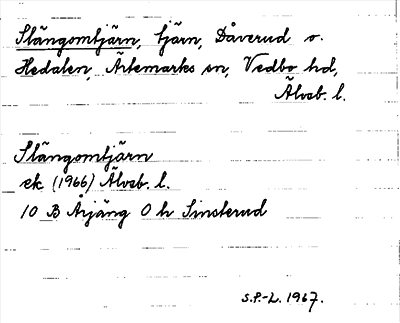 Slängomtjärn, tjärn, Dåverud o.
Hedalen, Ärtemarks sn, Vedbo hd,
Älvsb. l.
Slängomtjärn
ek (1966) Älvsb. l.
10 B Årjäng 0 h Sinsterud
S.P.-L. 1967.